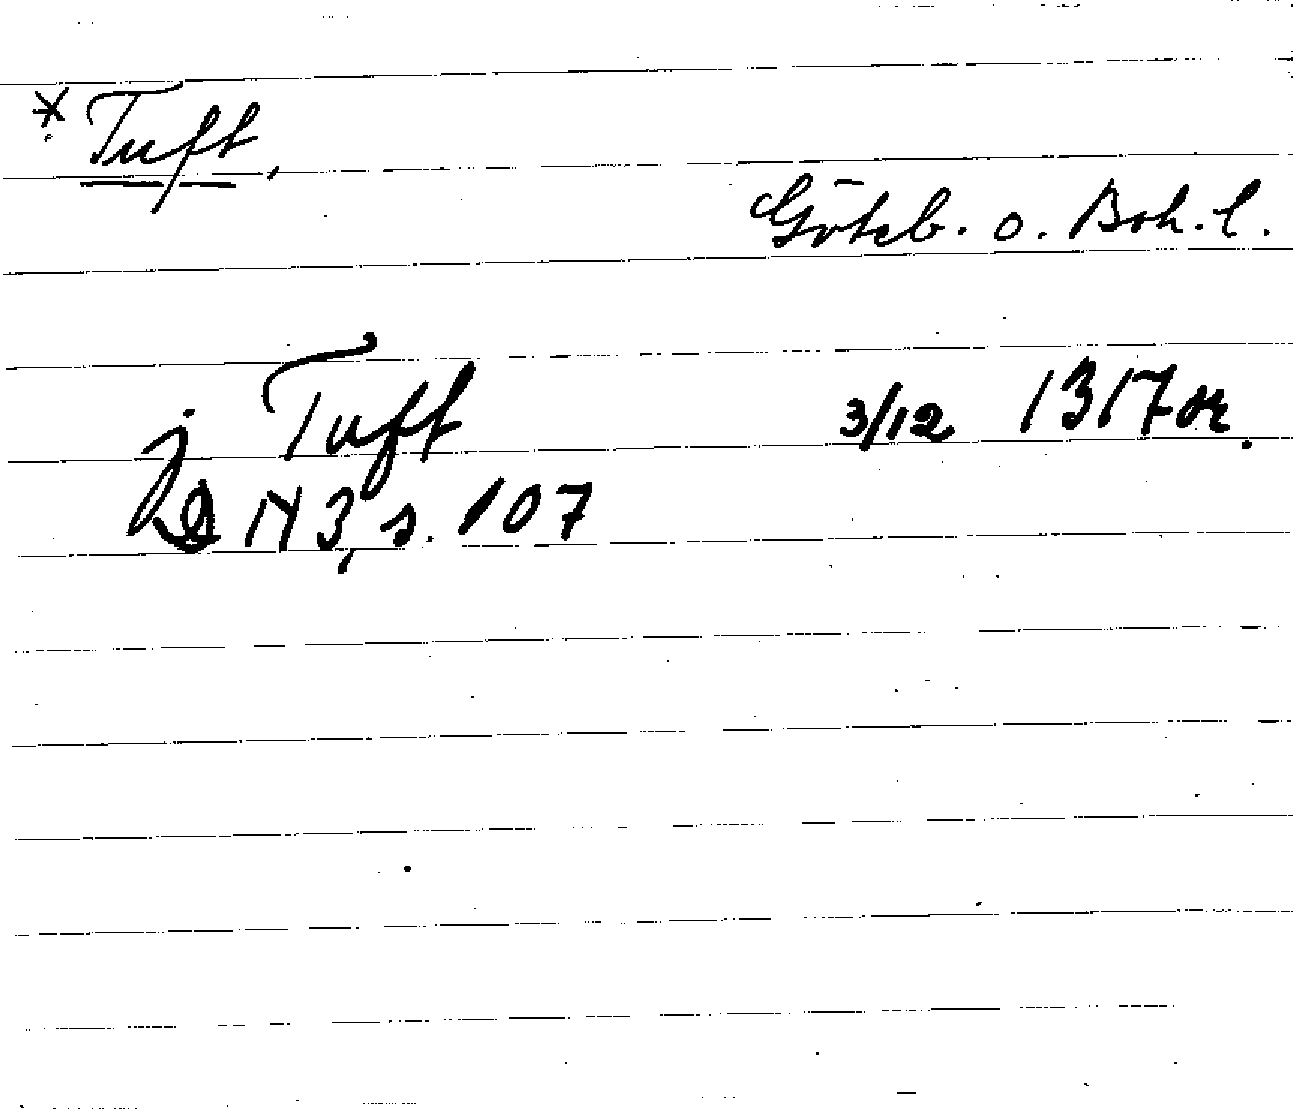 * Tuft,
Göteb. o. Boh. l.
j Tuft 3/12 1317 or.
DN 3, s. 107